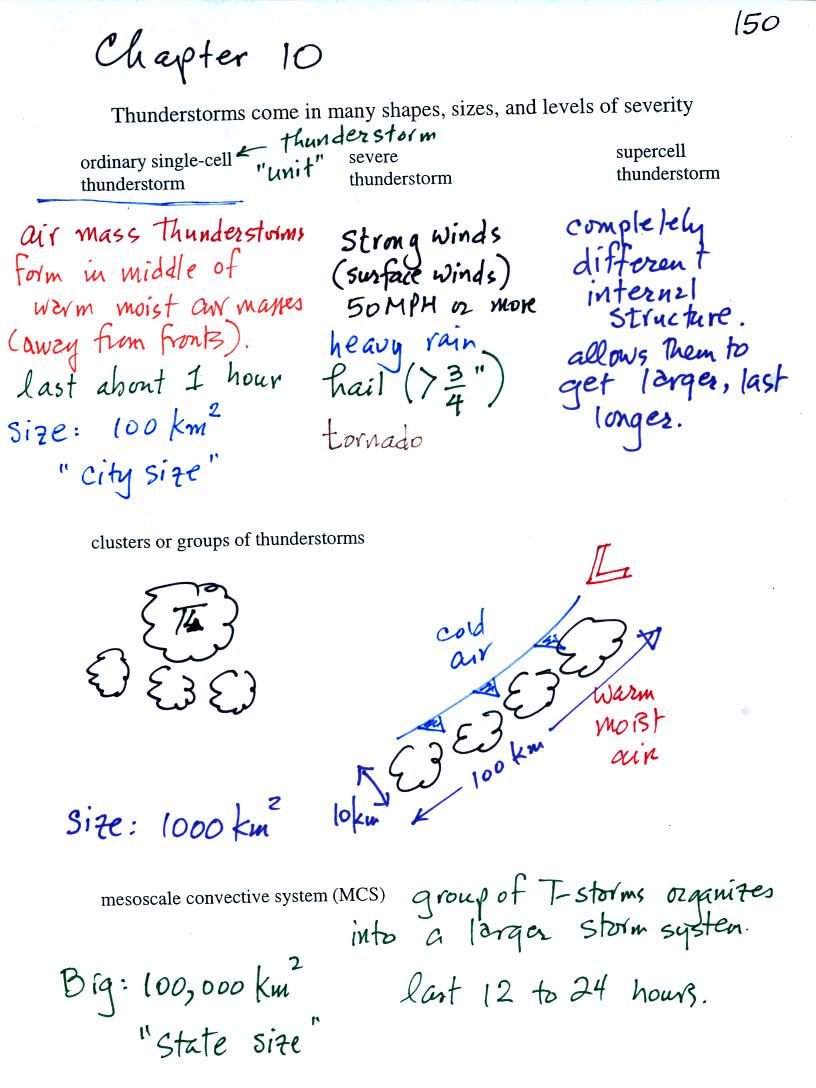 150
Chapter 10
Thunderstorms come in many shapes, sizes, and levels of severity
thunderstorm
"unit"
ordinary single-cell
thunderstorm
air mass thunderstorms
form in middle of
warm moist air masses
(away from fronts).
last about 1 hour
Size: 100 km²
"city size"
severe
thunderstorm
Strong winds
(surface winds)
50 MPH or more
heavy rain
hail (> 3/4")
tornado
supercell
thunderstorm
completely
different
internal
structure.
allows them to
get larger, last
longer.
clusters or groups of thunderstorms
L
cold
air
warm
moist
air
100 km
10 km
Size: 1000 km²
mesoscale convective system (MCS)
group of T-storms organizes
into a larger storm system.
Big: 100,000 km²
"State size"
last 12 to 24 hours.